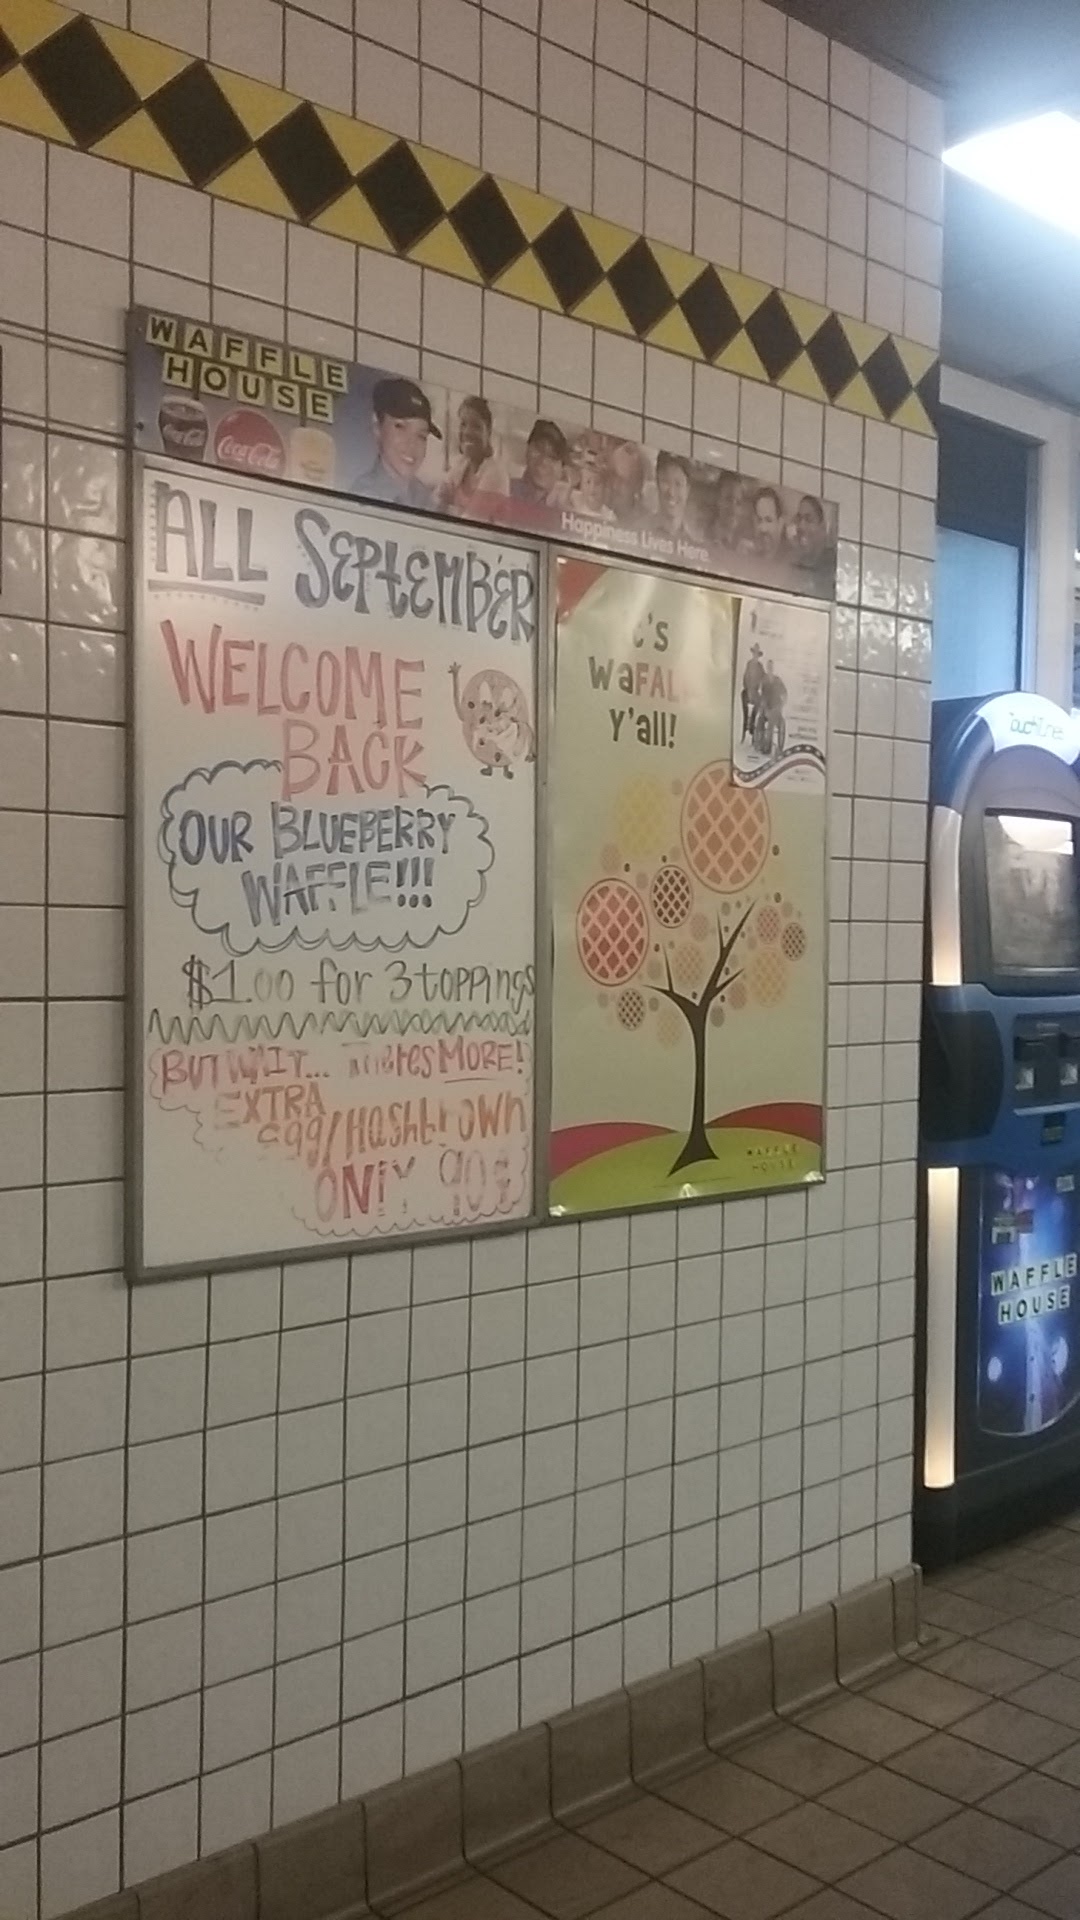 WAFFLE
HOUSE
Coca-Cola
Coca-Cola
Happiness Lives Here
ALL SEPTEMBER
WELCOME
BACK
OUR BLUEBERRY
WAFFLE!!!
$1.00 for 3 toppings
BUT WAIT... Theres MORE!
EXTRA
egg/Hashbrown
ONLY 90¢
t's
waFALL
Y'all!
WAFFLE
HOUSE
TouchTunes
WAFFLE
HOUSE